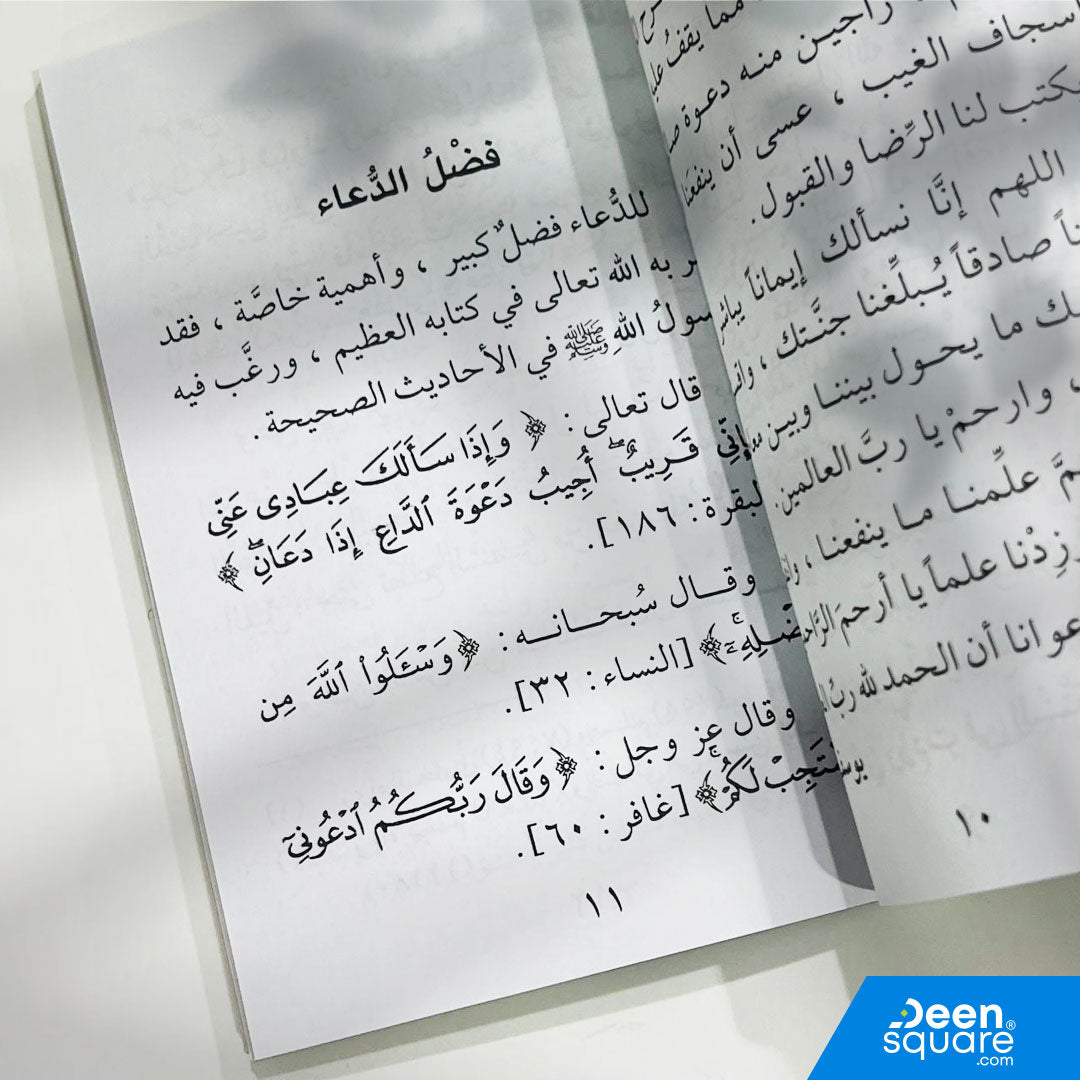 مما يقفُ
راجين منه دعوة
أسجاف الغيب ، عسى أن ينفعنا
لنا الرِّضا والقبول.
اللهم إنَّا نسألك إيماناً
صادقاً يُبلِّغنا جنَّتك ،
ما يحول بيننا وبين
، وارحمْ يا ربَّ العالمين.
علِّمنا ما ينفعنا ،
زِدْنا علماً يا أرحمَ
انا أن الحمد لله ربِّ
١٠
فضْلُ الدُّعاء
للدُّعاء فضلٌ كبير ، وأهمية خاصَّة ، فقد
به الله تعالى في كتابه العظيم ، ورغَّب فيه
سولُ اللهِ ﷺ في الأحاديث الصحيحة .
قال تعالى : ﴿ وَإِذَا سَأَلَكَ عِبَادِى عَنِّى
إِنِّى قَرِيبٌ ۖ أُجِيبُ دَعْوَةَ ٱلدَّاعِ إِذَا دَعَانِ ۖ ﴾
لبقرة : ١٨٦].
وقـال سُبحـانـه : ﴿ وَسْـَٔلُوا۟ ٱللَّهَ مِن
ضْلِهِۦٓ ۚ ﴾ [النساء : ٣٢].
وقال عز وجل : ﴿ وَقَالَ رَبُّكُمُ ٱدْعُونِىٓ
سْتَجِبْ لَكُمْ ۚ ﴾ [غافر : ٦٠].
١١
Deen®
square
.com